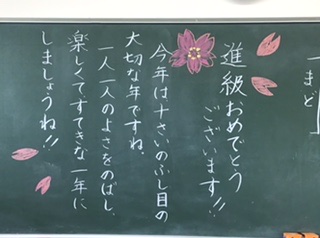 進級おめでとう
ございます!!
今年は十さいのふし目の
大切な年ですね。
一人一人のよさをのばし、
楽しくてすてきな一年に
しましょうね!!